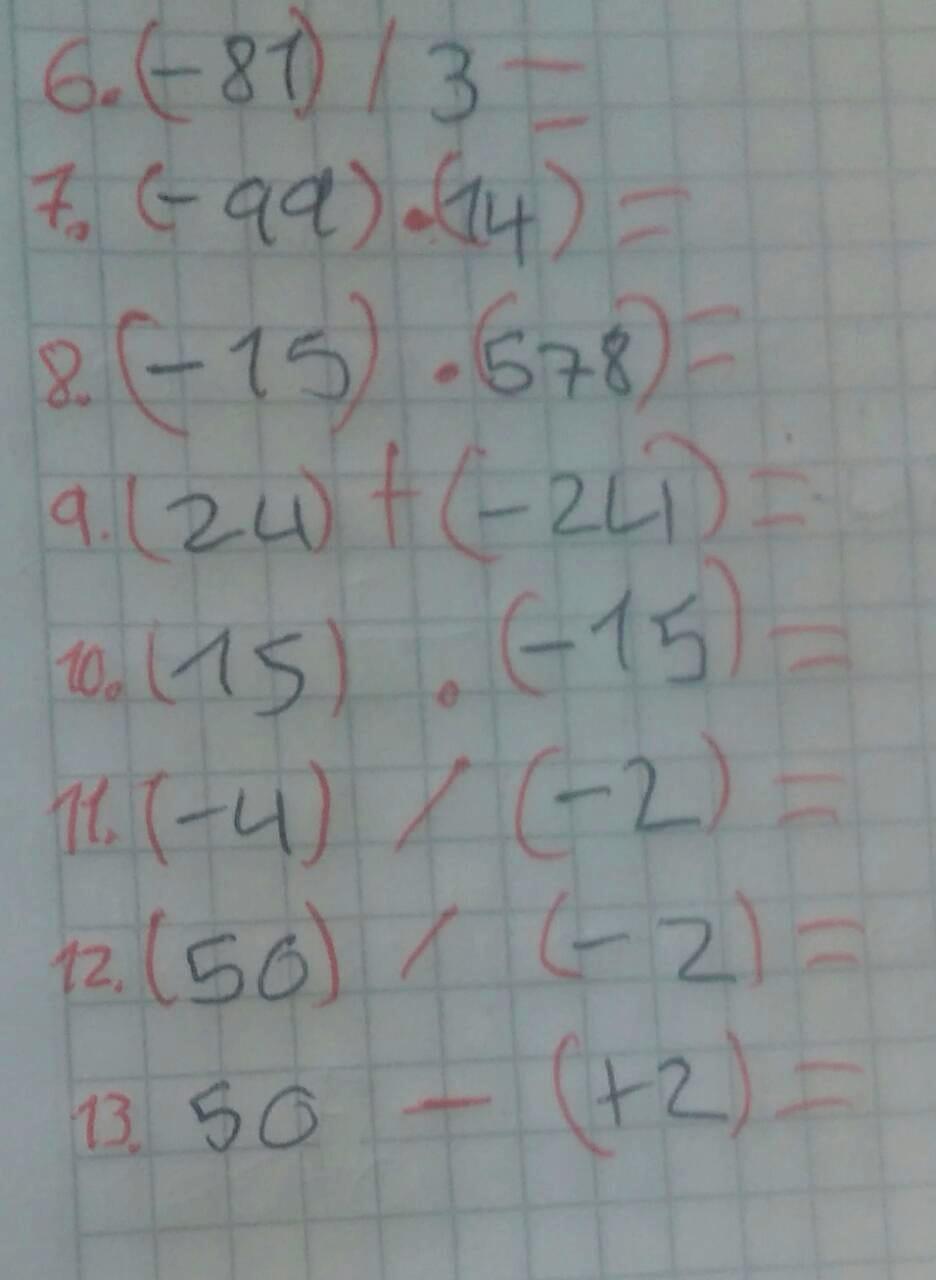 6. (-81) / 3 =
7. (-99) · (14) =
8. (-15) · (578) =
9. (24) + (-24) =
10. (15) · (-15) =
11. (-4) / (-2) =
12. (50) / (-2) =
13. 50 - (+2) =